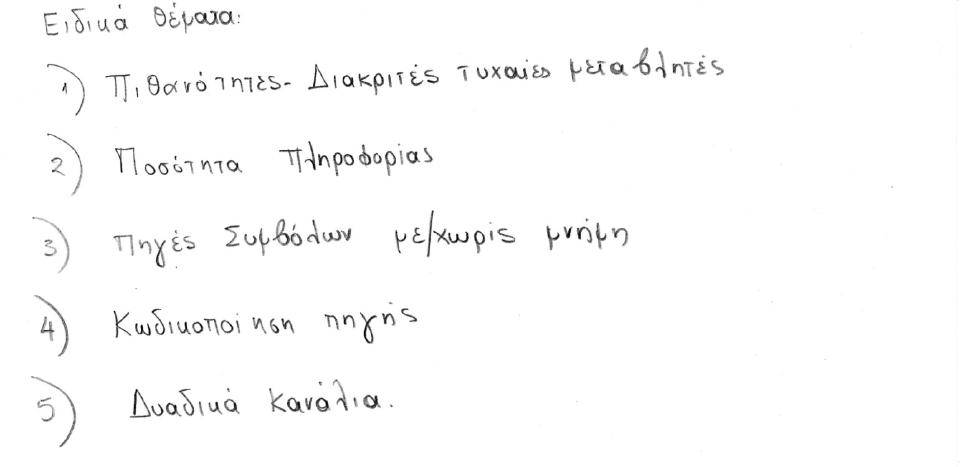 Ειδικά θέματα:
1) Πιθανότητες - Διακριτές τυχαίες μεταβλητές
2) Ποσότητα πληροφορίας
3) Πηγές Συμβόλων με/χωρίς μνήμη
4) Κωδικοποίηση πηγής
5) Δυαδικά κανάλια.